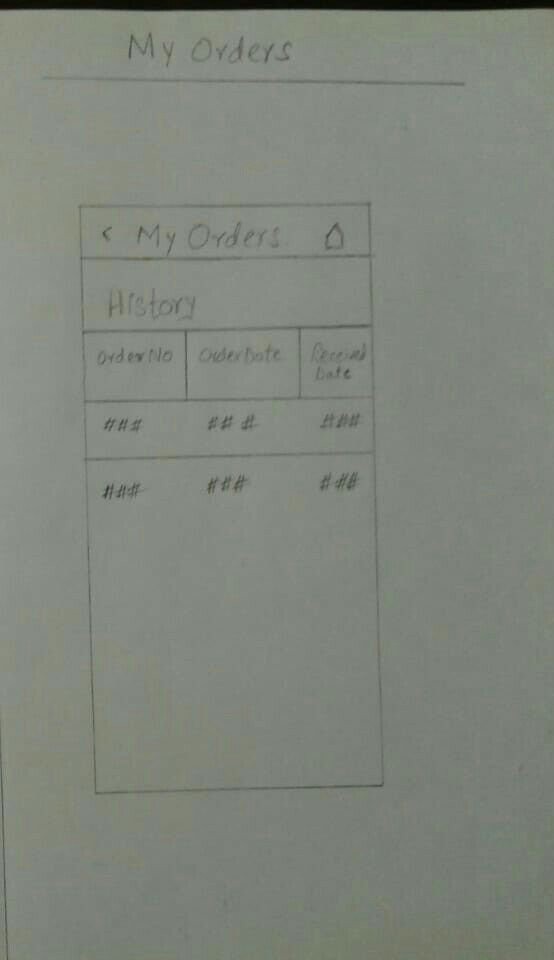 My Orders
< My Orders
History
Order No Order Date Received
Date
### ### ###
### ### ###